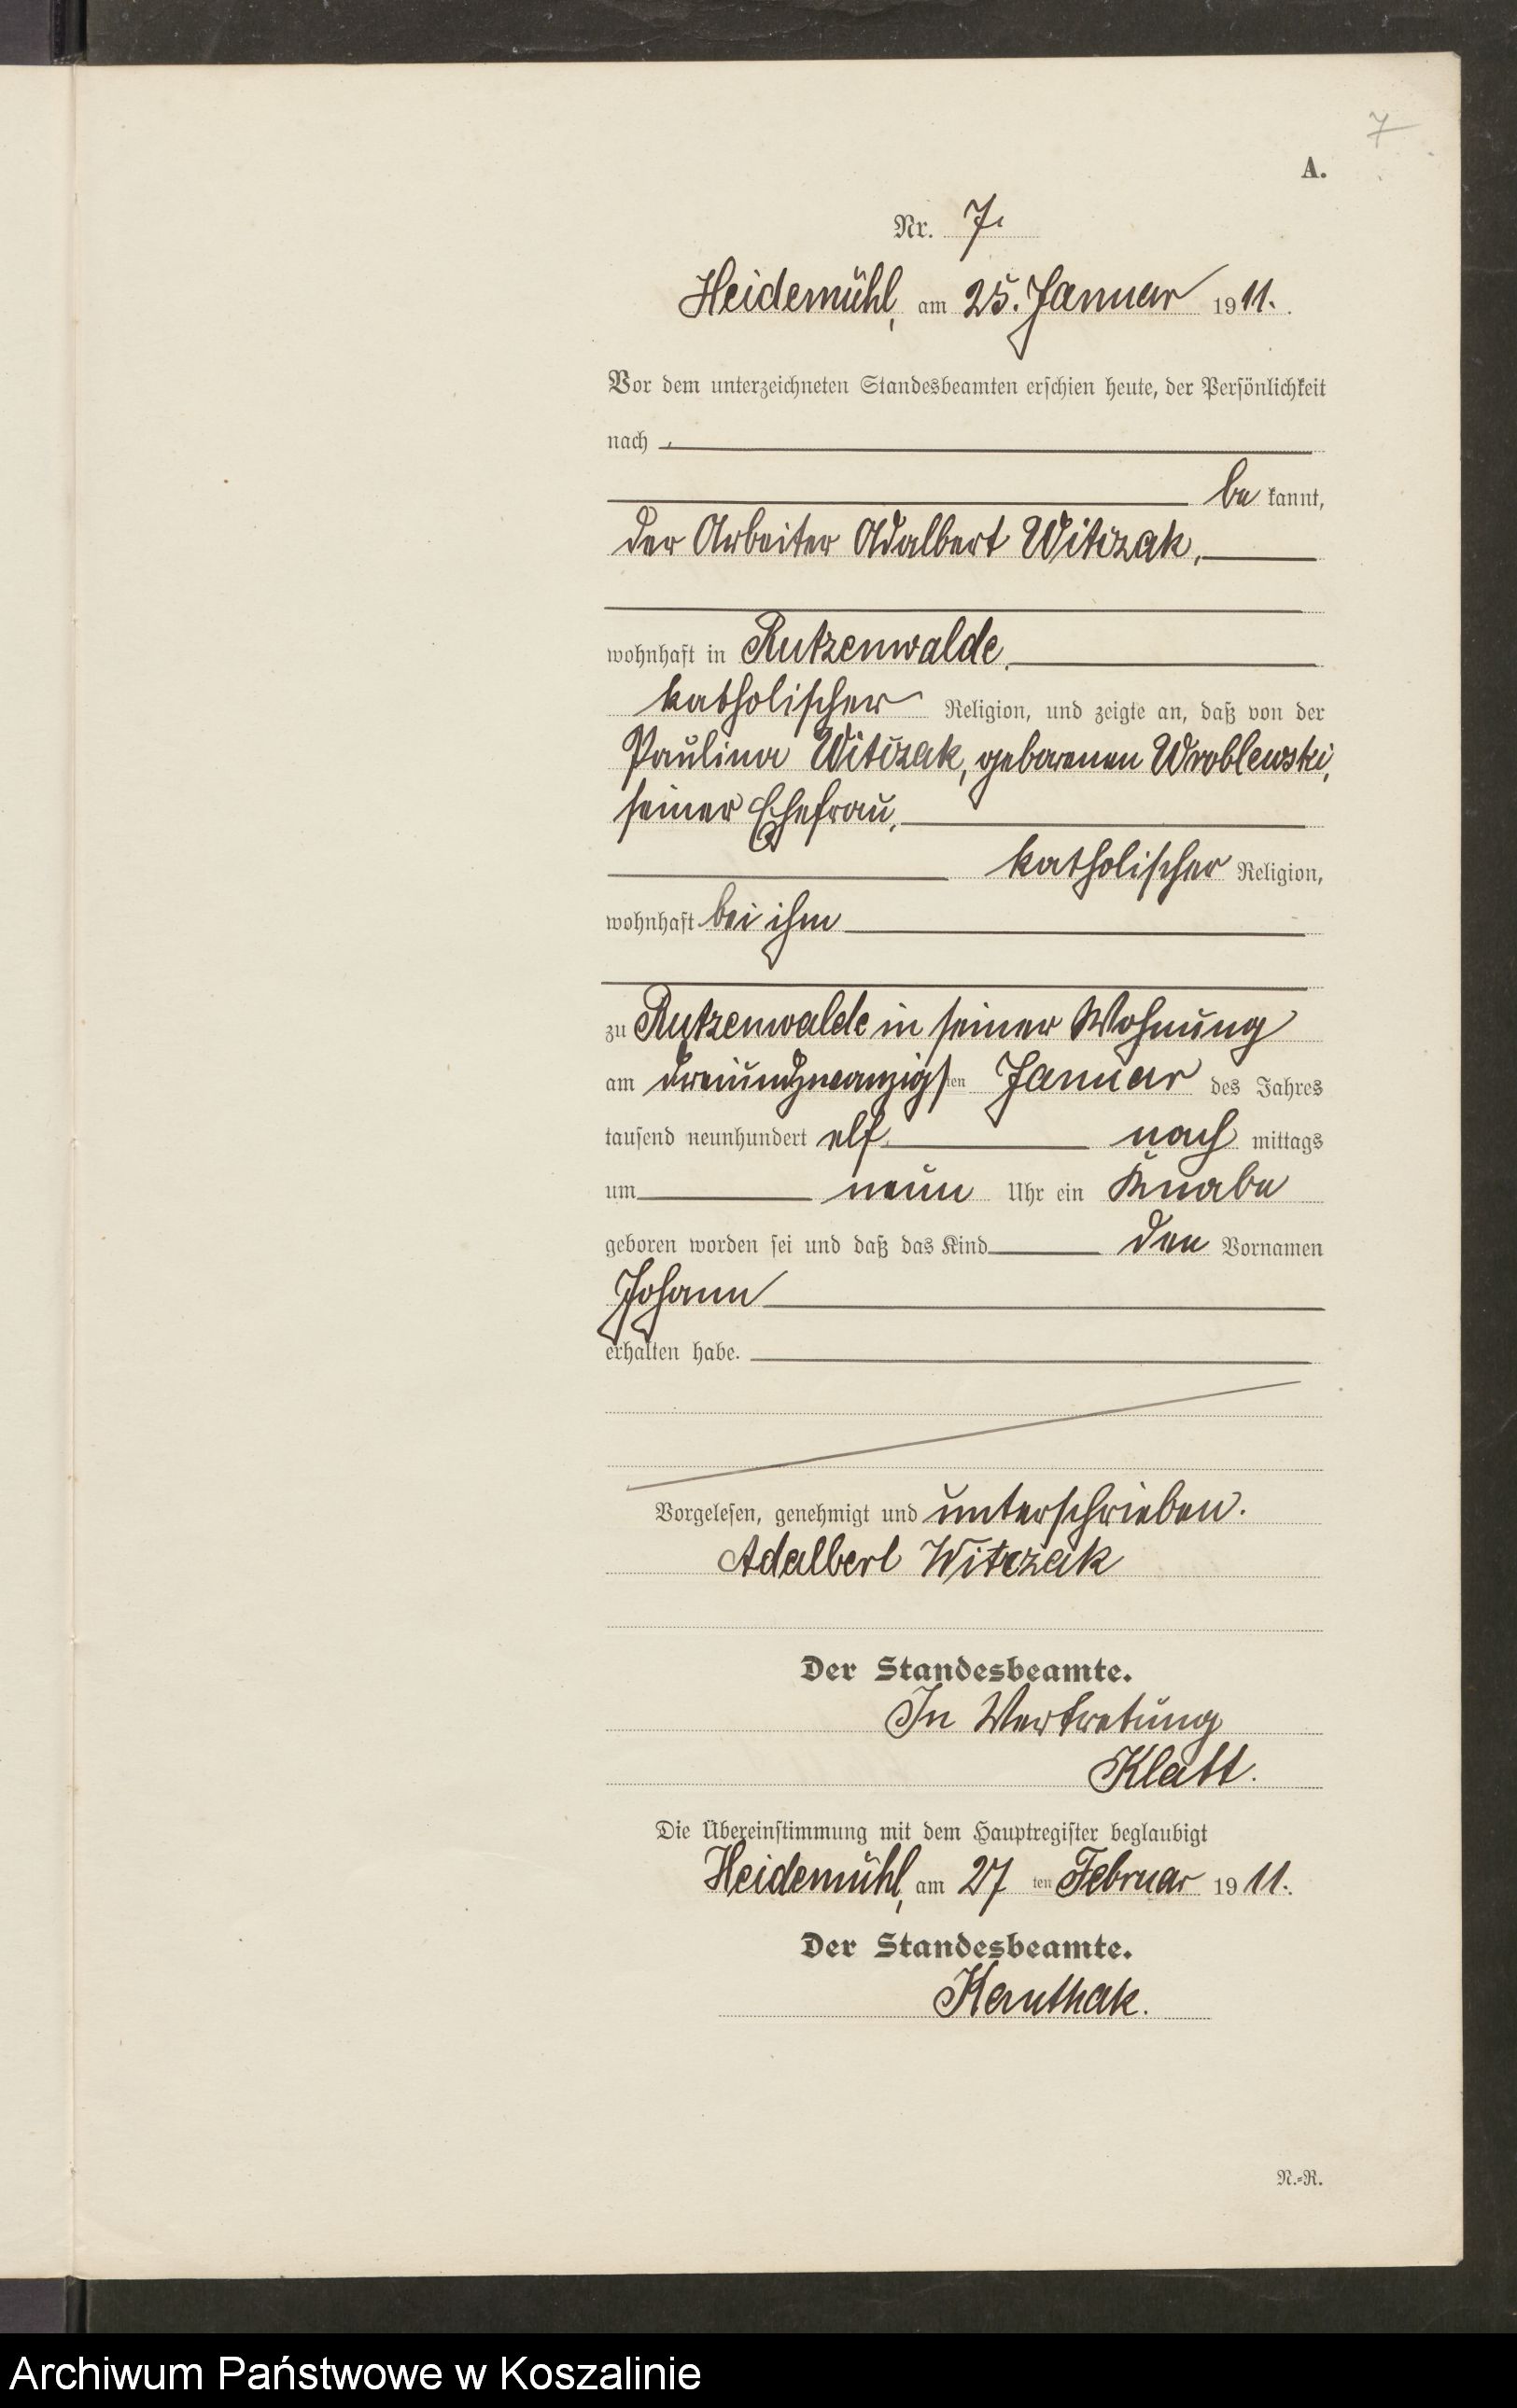 7
A.
Nr. 7.
Heidemühl, am 25. Januar 1911.
Vor dem unterzeichneten Standesbeamten erschien heute, der Persönlichkeit
nach
be kannt,
der Arbeiter Adalbert Witczak,
wohnhaft in Rutzenwalde,
katholischer Religion, und zeigte an, daß von der
Paulina Witczak, geborenen Wroblewski,
seiner Ehefrau,
katholischer Religion,
wohnhaft bei ihm
zu Rutzenwalde in seiner Wohnung
am dreiundzwanzigsten Januar des Jahres
tausend neunhundert elf nach mittags
um neun Uhr ein Knabe
geboren worden sei und daß das Kind den Vornamen
Johann
erhalten habe.
Vorgelesen, genehmigt und unterschrieben.
Adalbert Witczak
Der Standesbeamte.
In Vertretung
Klatt.
Die Übereinstimmung mit dem Hauptregister beglaubigt
Heidemühl, am 27 ten Februar 1911.
Der Standesbeamte.
N.-R.
Archiwum Państwowe w Koszalinie